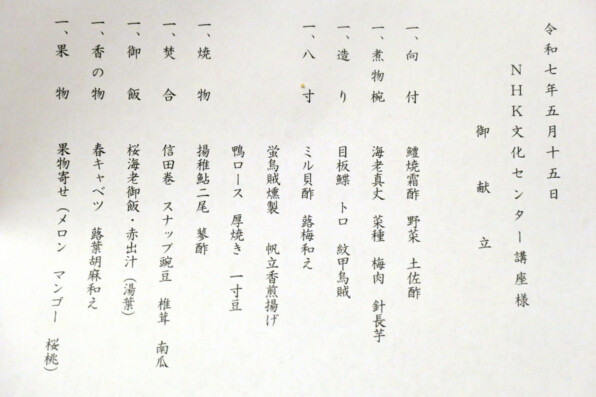 令和七年五月十五日
NHK文化センター講座様
御献立
一、向付 鱧焼霜酢 野菜 土佐酢
一、煮物椀 海老真丈 菜種 梅肉 針長芋
一、造り 目板鰈 トロ 紋甲烏賊
一、八寸 ミル貝酢 蕗梅和え
蛍烏賊燻製 帆立香煎揚げ
鴨ロース 厚焼き 一寸豆
一、焼物 揚稚鮎二尾 蓼酢
一、焚合 信田巻 スナップ豌豆 椎茸 南瓜
一、御飯 桜海老御飯・赤出汁（湯葉）
一、香の物 春キャベツ 蕗葉胡麻和え
一、果物 果物寄せ（メロン マンゴー 桜桃）